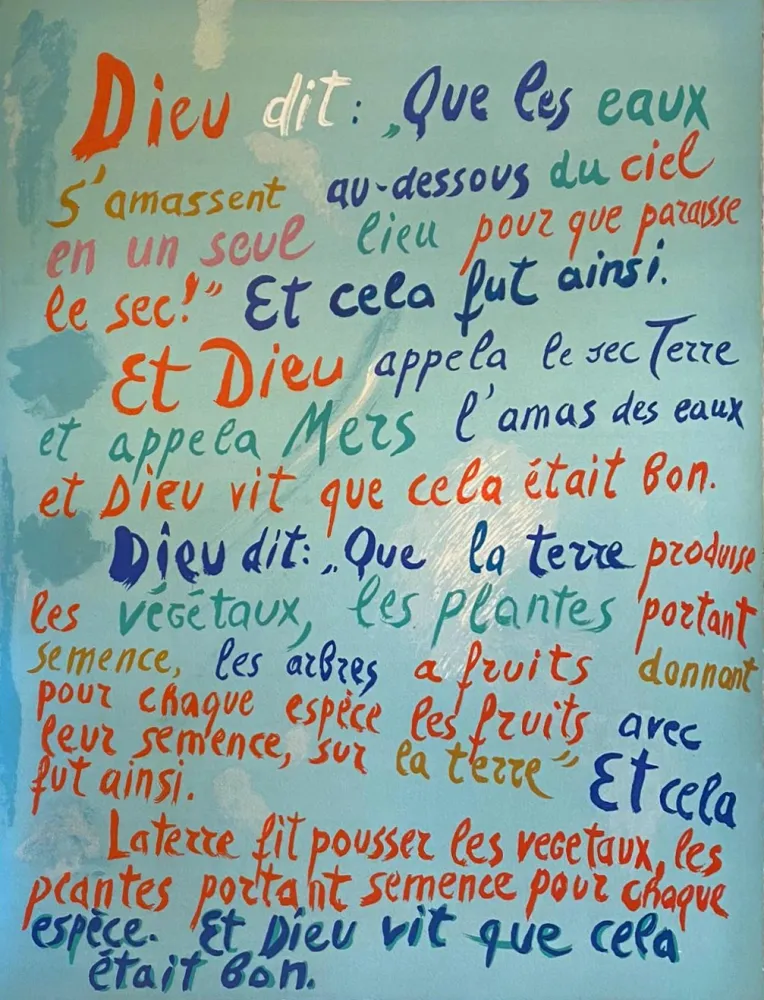 Dieu dit: „Que les eaux
s'amassent au-dessous du ciel
en un seul lieu pour que paraisse
le sec!” Et cela fut ainsi.
Et Dieu appela le sec Terre
et appela Mers l'amas des eaux
et Dieu vit que cela était bon.
Dieu dit: „Que la terre produise
les végétaux, les plantes portant
semence, les arbres a fruits donnant
pour chaque espèce les fruits avec
leur semence, sur la terre” Et cela
fut ainsi.
La terre fit pousser les vegetaux, les
plantes portant semence pour chaque
espèce. Et Dieu vit que cela
était bon.